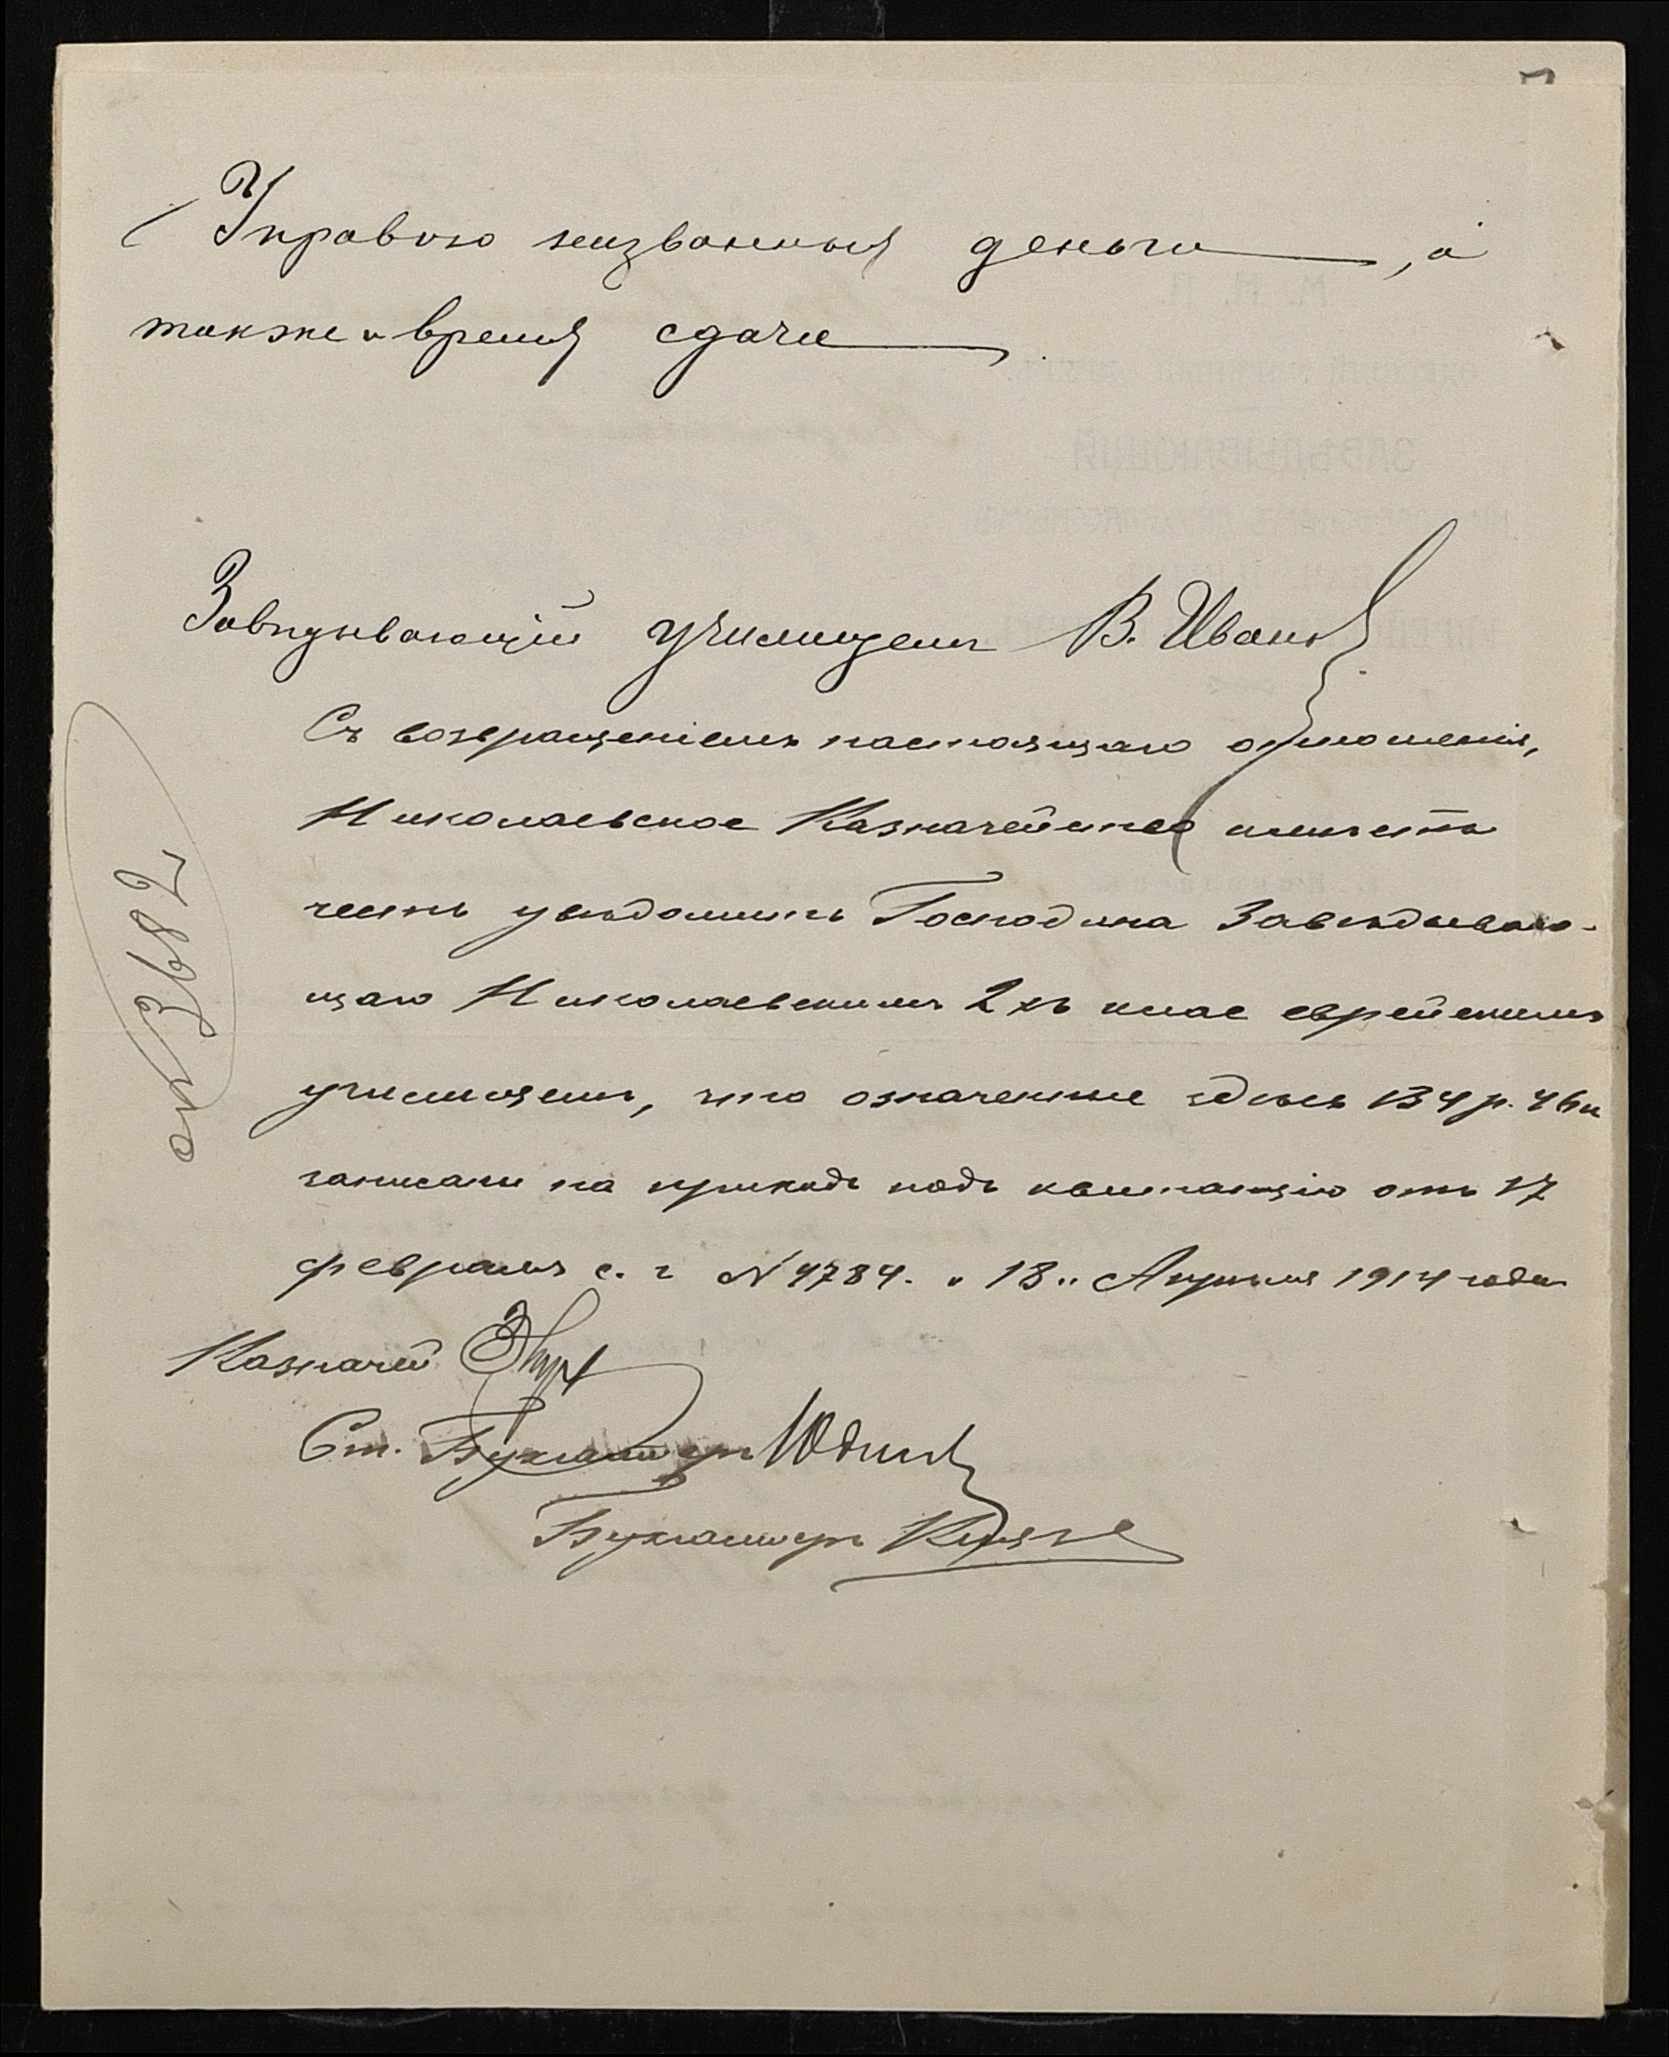 Управою названныя деньги, а
также и время сдачи
Завѣдывающій училищемъ В. Ивановъ
Съ возвращеніемъ настоящаго отношенія,
Николаевское Казначейство имѣетъ
честь увѣдомить Господина Завѣдываю-
щаго Николаевскимъ 2хъ клас еврейскимъ
училищемъ, что означенные здѣсь 134 р. 46 к
записаны на приходъ подъ квитанцію отъ 17
февраля с. г № 4784. "18" Апрѣля 1914 года
Казначей
Ст. Бухгалтеръ Юдинъ
Бухгалтеръ
3682